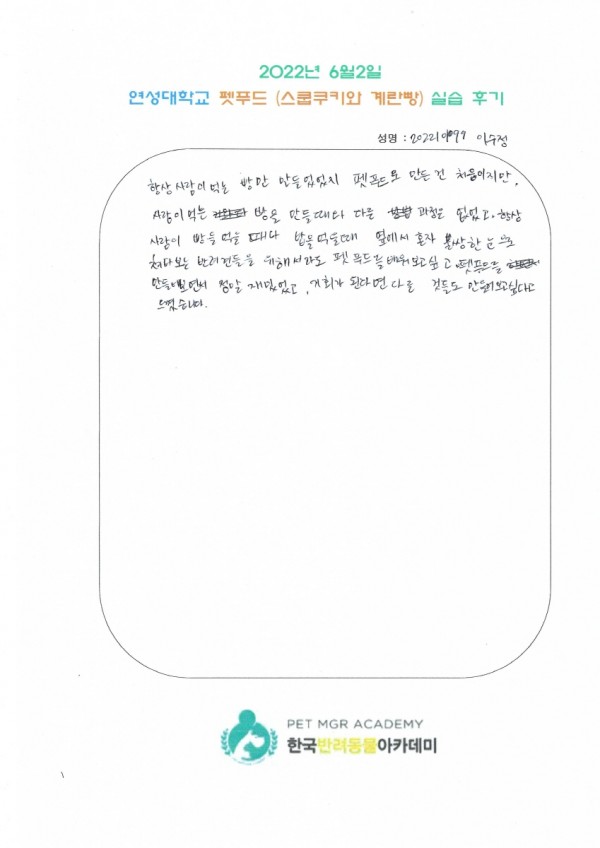 2022년 6월2일
연성대학교 펫푸드 (스쿱쿠키와 계란빵) 실습 후기
성명 : 이수정
항상 사람이 먹는 빵만 만들었었지 펫푸드로 만든건 처음이지만,
사람이먹는 빵을 만들때와 다른 과정은 없었고, 항상
사람이 빵을 먹을 때마다 밥을먹을때 옆에서 혼자 불쌍한 눈으로
쳐다보는 반려견들을 위해서라도 펫푸드를배워보고싶고, 펫푸드를
만들어보면서 정말 재밌었고, 기회가 된다면 다른 것들도 만들어보고싶다고
느꼈습니다.
PET MGR ACADEMY
한국반려동물아카데미